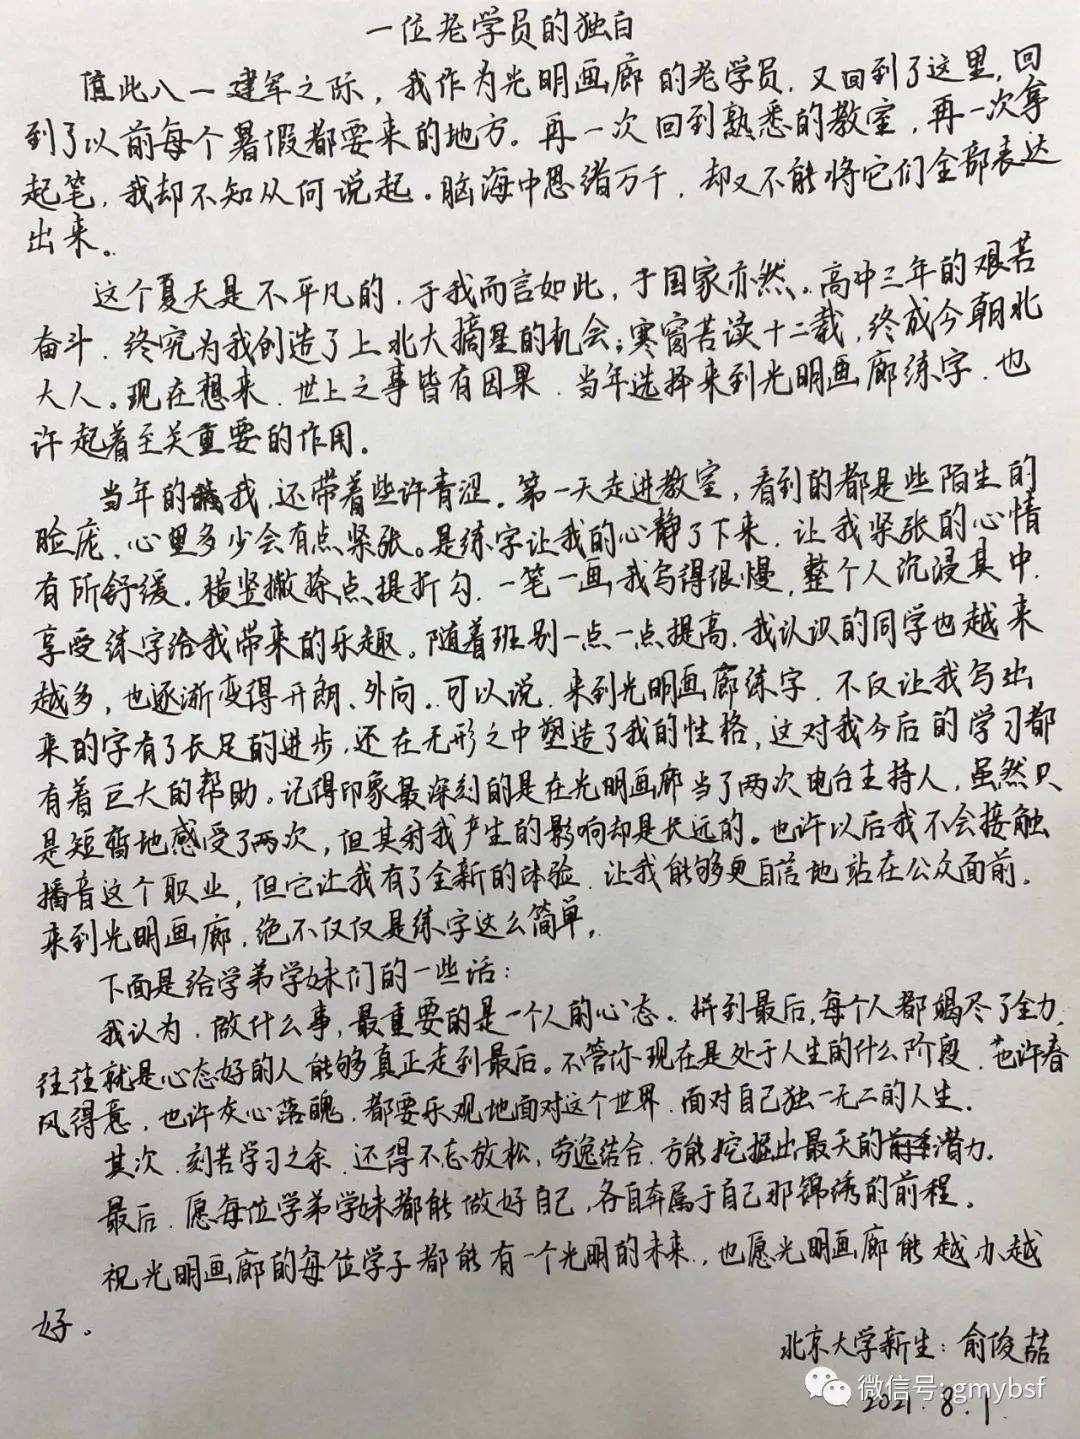 一位老学员的独白
值此八一建军之际，我作为光明画廊的老学员，又回到了这里，回
到了以前每个暑假都要来的地方。再一次回到熟悉的教室，再一次拿
起笔，我却不知从何说起。脑海中思绪万千，却又不能将它们全部表达
出来。
这个夏天是不平凡的，于我而言如此，于国家亦然。高中三年的艰苦
奋斗，终究为我创造了上北大摘星的机会；寒窗苦读十二载，终成今朝北
大人。现在想来，世上之事皆有因果，当年选择来到光明画廊练字，也
许起着至关重要的作用。
当年的我，还带着些许青涩。第一天走进教室，看到的都是些陌生的
脸庞，心里多少会有点紧张。是练字让我的心静了下来，让我紧张的心情
有所舒缓。横竖撇捺点提折勾，一笔一画我写得很慢，整个人沉浸其中，
享受练字给我带来的乐趣。随着班别一点一点提高，我认识的同学也越来
越多，也逐渐变得开朗、外向。可以说，来到光明画廊练字，不仅让我写出
来的字有了长足的进步，还在无形之中塑造了我的性格，这对我今后的学习都
有着巨大的帮助。记得印象最深刻的是在光明画廊当了两次电台主持人，虽然只
是短暂地感受了两次，但其对我产生的影响却是长远的。也许以后我不会接触
播音这个职业，但它让我有了全新的体验，让我能够更自信地站在公众面前。
来到光明画廊，绝不仅仅是练字这么简单。
下面是给学弟学妹们的一些话：
我认为，做什么事，最重要的是一个人的心态。拼到最后，每个人都竭尽了全力，
往往就是心态好的人能够真正走到最后。不管你现在是处于人生的什么阶段，也许春
风得意，也许灰心落魄，都要乐观地面对这个世界，面对自己独一无二的人生。
其次，刻苦学习之余，还得不忘放松，劳逸结合，方能挖掘出最大的潜力。
最后，愿每位学弟学妹都能做好自己，各自奔属于自己那锦绣的前程。
祝光明画廊的每位学子都能有一个光明的未来，也愿光明画廊能越办越
好。
北京大学新生：俞俊喆
微信号: gmybsf
2021.8.1